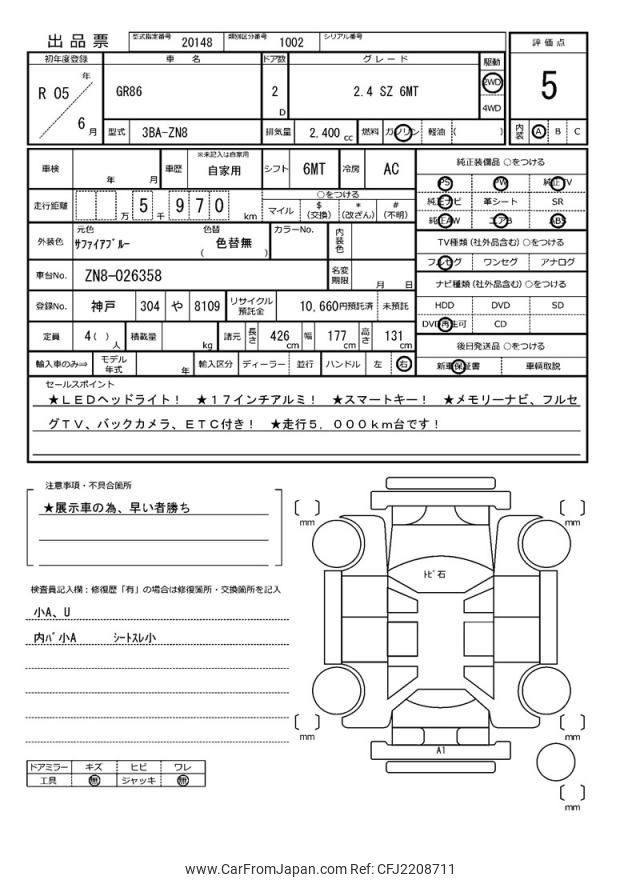 出品票 型式指定番号 20148 類別区分番号 1002 シリアル番号
評価点
5
内装 A B C
初年度登録 車名 ドア数 グレード 駆動
R 05 年 6 月 GR86 2 D 2.4 SZ 6MT 2WD 4WD
型式 3BA-ZN8 排気量 2,400 cc 燃料 ガソリン 軽油 ( )
車検 年 月 車歴 ※未記入は自家用 自家用 シフト 6MT 冷房 AC
走行距離 万 5 千 9 7 0 km ○をつける
マイル $(交換) *(改ざん) #(不明)
外装色 元色 サファイアブルー 色替 ( 色替無 ) カラーNo. 内装色
車台No. ZN8-026358 名変期限 月 日
登録No. 神戸 304 や 8109 リサイクル預託金 10,660円預託済 未預託
定員 4( ) 人 積載量 kg 諸元 長さ 426 cm 幅 177 cm 高さ 131 cm
輸入車のみ⇒ モデル年式 年 輸入区分 ディーラー 並行 ハンドル 左 右
純正装備品 ○をつける
PS PW 純正TV
純正ナビ 革シート SR
純正AW エアB ABS
TV種類 (社外品含む) ○をつける
フルセグ ワンセグ アナログ
ナビ種類 (社外品含む) ○をつける
HDD DVD SD
DVD再生可 CD
後日発送品 ○をつける
新車保証書 車輌取説
セールスポイント
★ＬＥＤヘッドライト！ ★１７インチアルミ！ ★スマートキー！ ★メモリーナビ、フルセ
グＴＶ、バックカメラ、ＥＴＣ付き！ ★走行５．０００ｋｍ台です！
注意事項・不具合箇所
★展示車の為、早い者勝ち
検査員記入欄：修復歴「有」の場合は修復箇所・交換箇所を記入
小A、U
内バ小A シートスレ小
ドアミラー キズ ヒビ ワレ
工具 無 ジャッキ 無
mm
mm
トビ石
mm
mm
A1
mm
www.CarFromJapan.com Ref: CFJ2208711